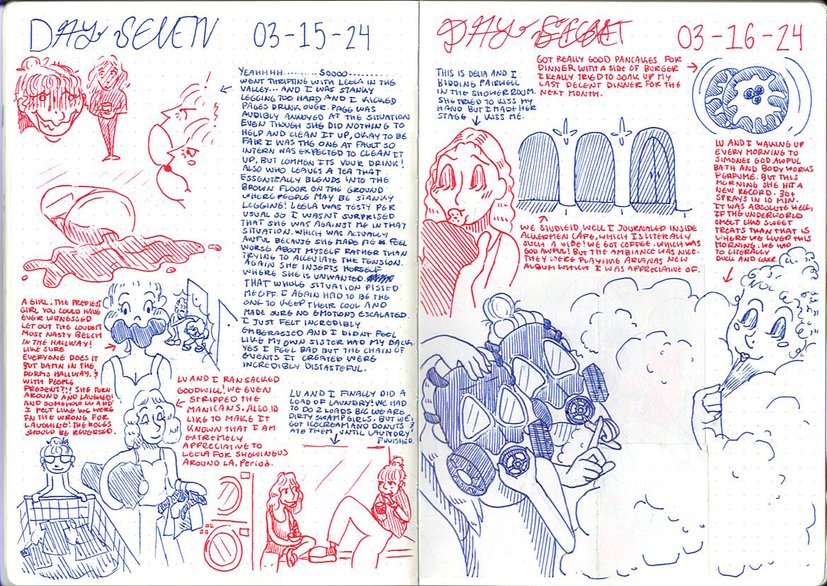 DAY SEVEN 03-15-24
YEAHHHH........ SOOOO........
WENT THRIFTING WITH LEELA IN THE
VALLEY... AND I WAS STANKY
LEGGING TOO HARD AND I KICKED
PAGES DRINK OVER. PAGE WAS
AUDIBLY ANNOYED AT THE SITUATION
EVEN THOUGH SHE DID NOTHING TO
HELP AND CLEAN IT UP, OKAY TO BE
FAIR I WAS THE ONE AT FAULT SO
INTERN WAS EXPECTED TO CLEAN IT
UP, BUT COMMON ITS YOUR DRINK!
ALSO WHO LEAVES A TEA THAT
ESSENTICALLY BLENDS INTO THE
BROWN FLOOR ON THE GROUND
WHERE PEOPLE MAY BE STANKY
LEGGING! LEELA WAS TESTY PER
USUAL SO I WASN'T SURPRISED
THAT SHE WAS AGAINST ME IN THAT
SITUATION. WHICH WAS ACTUALLY
AWFUL BECAUSE SHE MADE ME FEEL
WORSE ABOUT MYSELF RATHER THAN
TRYING TO ALLEVIATE THE TENSION.
AGAIN SHE INSERTS HERSELF
WHERE SHE IS UNWANTED
THAT WHOLE SITUATION PISSED
ME OFF. I AGAIN HAD TO BE THE
ONE TO KEEP THEIR COOL AND
MADE SURE NO EMOTIONS ESCALATED.
I JUST FELT INCREDIBLY
EMBARESSED AND I DIDN'T FEEL
LIKE MY OWN SISTER HAD MY BACK.
YES I FEEL BAD BUT THE CHAIN OF
EVENTS IT CREATED WERE
INCREDIBLY DISTASTEFUL.
A GIRL, THE PREDIEST
GIRL YOU COULD HAVE
EVER WITNESSED
LET OUT THE LOUDEST
MOST NASTY BELCH
IN THE HALLWAY!
LIKE SURE
EVERYONE DOES IT
BUT DAMN IN THE
DORMS HALLWAY, &
WITH PEOPLE
PRESENT?!! SHE TURN
AROUND AND LAUGHED!
AND SOMEHOW LU AND
I FELT LIKE WE WERE
IN THE WRONG FOR
LAUGHING! THE ROLES
SHOULD BE REVERSED.
LU AND I RANSACKED
GOODWILL! WE EVEN
STRIPPED THE
MANICANS. ALSO ID
LIKE TO MAKE IT
KNOWN THAT I AM
EXTREMELY
APPRECIATIVE TO
LEELA FOR SHOWING US
AROUND LA. Period.
LU AND I FINALLY DID A
LOAD OF LAUNDRY! WE HAD
TO DO 2 LOADS BC WE ARE
DIRTY SWAMP GIRLS! BUT WE
GOT ICECREAM AND DONUTS &
ATE THEM, UNTIL LAUNDRY
FINISHED.
DAY SECRET 03-16-24
GOT REALLY GOOD PANCAKES FOR
DINNER WITH A SIDE OF BURGER
I REALLY TRIED TO SOAK UP MY
LAST DECENT DINNER FOR THE
NEXT MONTH.
THIS IS DELIA AND I
BIDDING FAIRWELL
IN THE SHOWER ROOM.
SHE TRIED TO KISS MY
HAND BUT I MADE HER
STAGE KISS ME.
WE STUDIED, WELL I JOURNALED INSIDE
CAFE, WHICH IS LITERALLY
SUCH A VIBE! WE GOT COFFEE. WHICH WAS
GOD AWFUL BUT THE AMBIANCE WAS NICE.
THEY WERE PLAYING ARIANAS NEW
ALBUM WHICH I WAS APPRECIATIVE OF.
LU AND I WAKING UP
EVERY MORNING TO
SIMONES GOD AWFUL
BATH AND BODY WORKS
PERFUME. BUT THIS
MORNING SHE HIT A
NEW RECORD. 30+
SPRAYS IN 10 MIN.
IT WAS ABSOLUTE HELL,
IF THE UNDERWORLD
SMELT LIKE SWEET
TREATS THAN THAT IS
WHERE WE WOKE THIS
MORNING. WE HAD
TO LITERALLY
DUCK AND COVER.